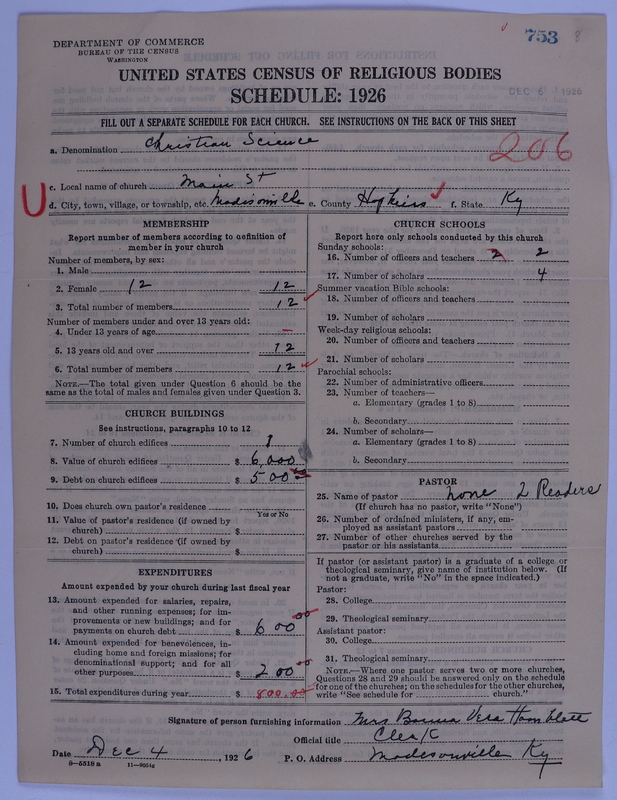 753 8
DEPARTMENT OF COMMERCE
BUREAU OF THE CENSUS
WASHINGTON
UNITED STATES CENSUS OF RELIGIOUS BODIES
SCHEDULE: 1926
DEC 6 1926
FILL OUT A SEPARATE SCHEDULE FOR EACH CHURCH. SEE INSTRUCTIONS ON THE BACK OF THIS SHEET
a. Denomination Christian Science
206
c. Local name of church Main St
U
d. City, town, village, or township, etc. Madisonville e. County Hopkins f. State Ky
MEMBERSHIP
Report number of members according to definition of
member in your church
Number of members, by sex:
1. Male
2. Female 12 12
3. Total number of members 12
Number of members under and over 13 years old:
4. Under 13 years of age —
5. 13 years old and over 12
6. Total number of members 12
NOTE.—The total given under Question 6 should be the
same as the total of males and females given under Question 3.
CHURCH BUILDINGS
See instructions, paragraphs 10 to 12
7. Number of church edifices 1
8. Value of church edifices $ 6,000
9. Debt on church edifices $ 500
10. Does church own pastor's residence
Yes or No
11. Value of pastor's residence (if owned by
church) $
12. Debt on pastor's residence (if owned by
church) $
EXPENDITURES
Amount expended by your church during last fiscal year
13. Amount expended for salaries, repairs,
and other running expenses; for im-
provements or new buildings; and for
payments on church debt $ 600 00
14. Amount expended for benevolences, in-
cluding home and foreign missions; for
denominational support; and for all
other purposes $ 200 00
15. Total expenditures during year $ 800.00
CHURCH SCHOOLS
Report here only schools conducted by this church
Sunday schools:
16. Number of officers and teachers 2 2
17. Number of scholars 4
Summer vacation Bible schools:
18. Number of officers and teachers
19. Number of scholars
Week-day religious schools:
20. Number of officers and teachers
21. Number of scholars
Parochial schools:
22. Number of administrative officers
23. Number of teachers—
a. Elementary (grades 1 to 8)
b. Secondary
24. Number of scholars—
a. Elementary (grades 1 to 8)
b. Secondary
PASTOR
25. Name of pastor none 2 Readers
(If church has no pastor, write "None")
26. Number of ordained ministers, if any, em-
ployed as assistant pastors
27. Number of other churches served by the
pastor or his assistants
If pastor (or assistant pastor) is a graduate of a college or
theological seminary, give name of institution below. (If
not a graduate, write "No" in the space indicated.)
Pastor:
28. College
29. Theological seminary
Assistant pastor:
30. College
31. Theological seminary
NOTE.—Where one pastor serves two or more churches,
Questions 28 and 29 should be answered only on the schedule
for one of the churches; on the schedules for the other churches,
write "See schedule for church."
Signature of person furnishing information Mrs Vera
Official title Clerk
Date Dec 4, 1926 P. O. Address Madisonville Ky
8—5518 a 11—9051a